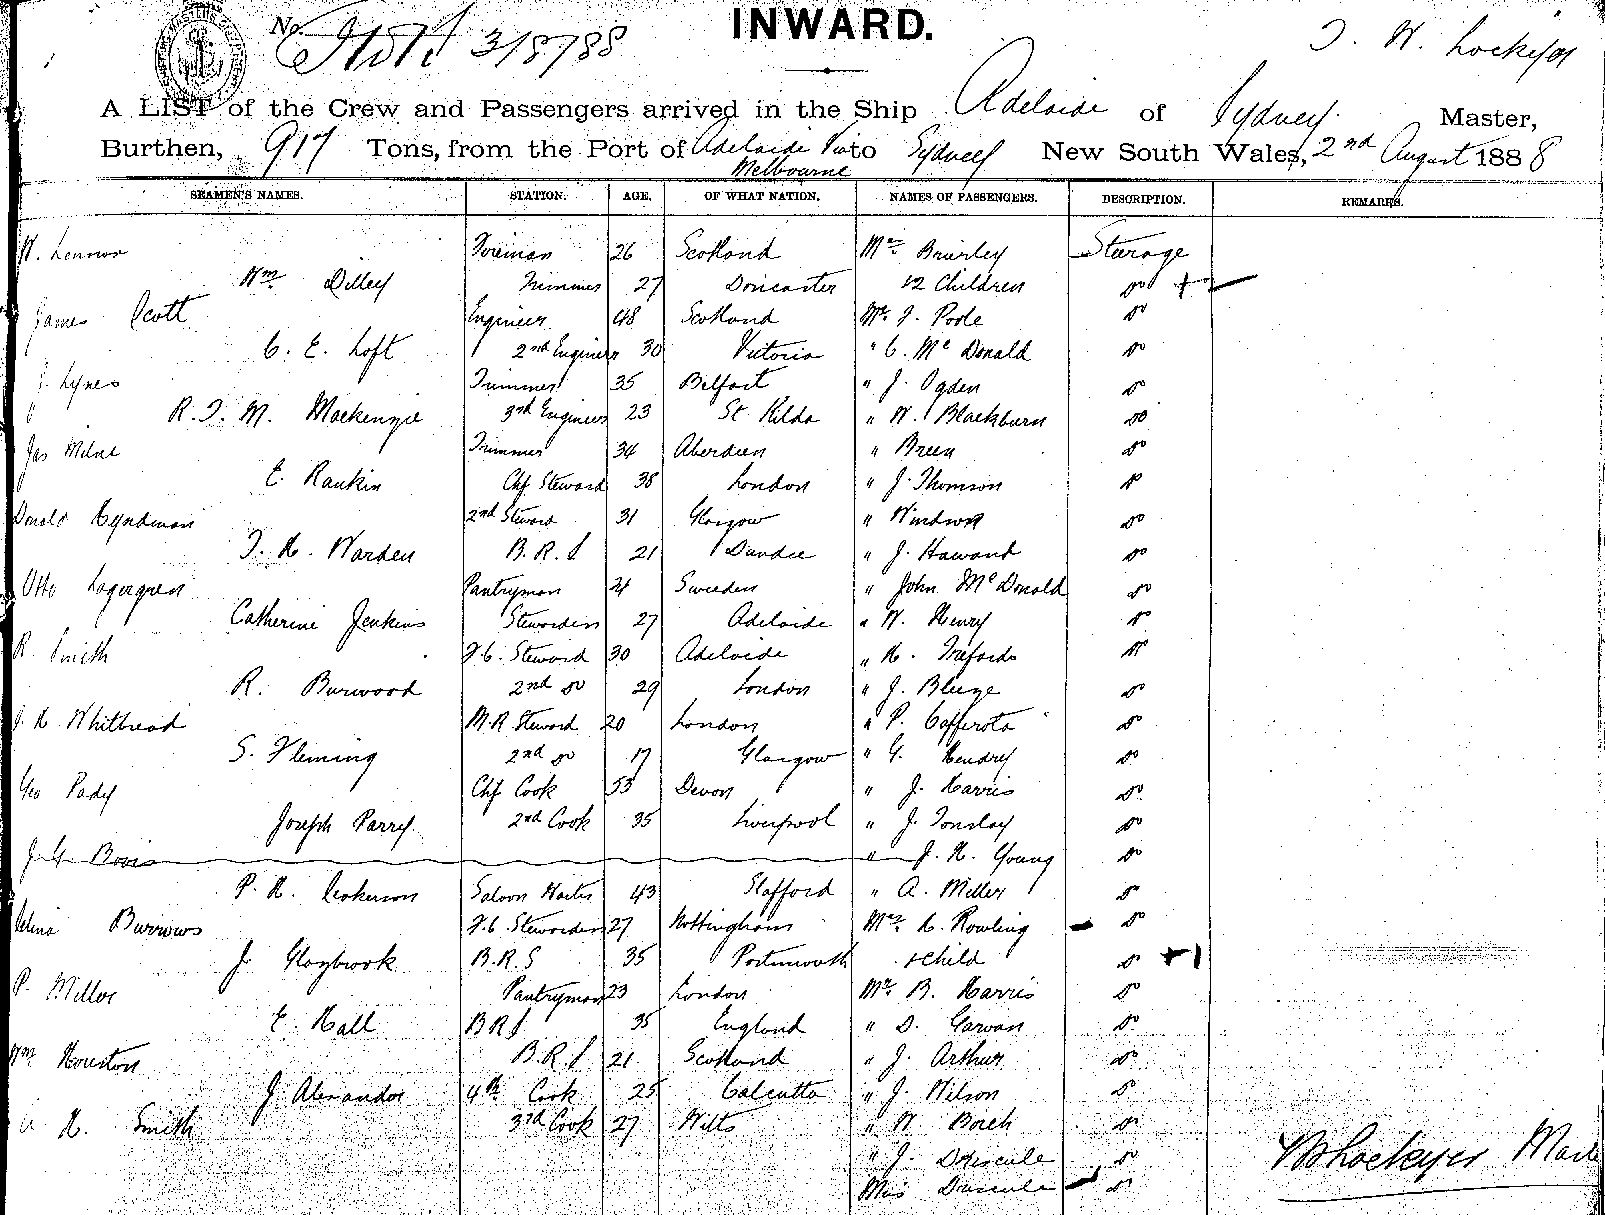 No. 3/8/88
INWARD.
A LIST of the Crew and Passengers arrived in the Ship Adelaide of Sydney Master,
Burthen, 917 Tons, from the Port of Adelaide Via to Sydney New South Wales, 2nd August 1888
Melbourne
SEAMEN'S NAMES. STATION. AGE. OF WHAT NATION. NAMES OF PASSENGERS. DESCRIPTION. REMARKS.
W. Lennox Fireman 26 Scotland Mrs Brierley
Wm Dilley Trimmer 27 Doncaster Children do
James Scott Engineer 48 Scotland Mr J. Poole do
C. E. Loft 2nd Engineer 30 Victoria " C. McDonald do
J. Lynes Trimmer 35 Belfast " J. Ogden do
R. J. M. Mackenzie 3rd Engineer 23 St Kilda " W. Blackburn do
Jas Milne Trimmer 34 Aberdeen " Breen do
E. Rankin Chf Steward 38 London " J. Thomson do
Donald Hyndman 2nd Steward 31 Glasgow " do
T. H. Warden B.R.S 21 Dundee " J. do
Otto Lagergren Pantryman Sweden " John McDonald do
Catherine Jenkins Stewardess 27 Adelaide " W. Henry do
R. Smith F.C. Steward 30 Adelaide " H. do
R. Burwood 2nd do 29 London " J. do
J. H. Whitbread M.R Steward 20 London " P. Cafferata do
S. Fleming 2nd do 17 Glasgow " G. Hendry do
Geo Pady Chf Cook 53 Devon " J. Harris do
Joseph Parry 2nd Cook 35 Liverpool " J. do
" J. H. Young do
P. H. Saloon 43 Stafford " A. Miller do
Selina Burrows F.C. Stewardess 27 Nottingham Mrs H. Rowling do
J. Glaybrook B.R.S 35 Portsmouth + Child do + 1
P. Miller Pantryman 23 London Mr B. Harris do
E. Hall BRS 35 England " D. Garvan do
Wm Houston B.R.S 21 Scotland " J. Arthur do
J. Alexander 4th Cook 25 Calcutta " J. Wilson do
H. Smith 3rd Cook 27 Wilts " W do
" J. do
Miss do